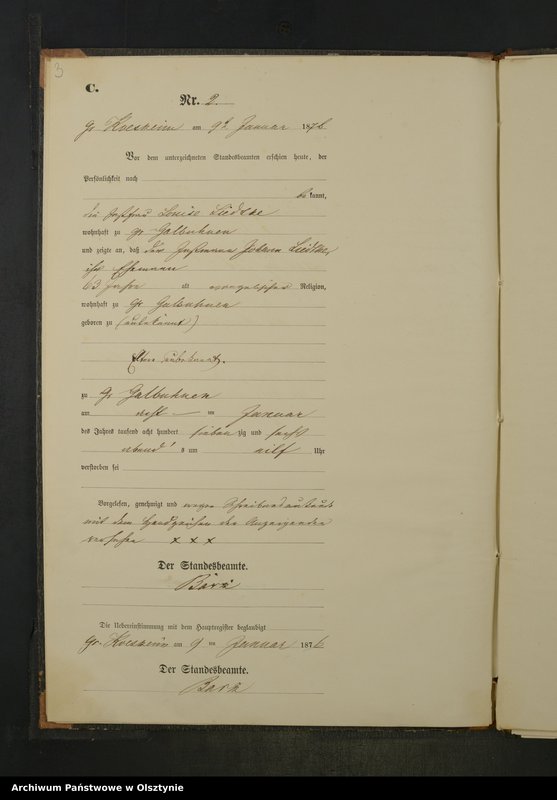 3
C.
Nr. 2.
Gr Koeskeim am 9ten Januar 1876
Vor dem unterzeichneten Standesbeamten erschien heute, der
Persönlichkeit nach
be kannt,
die Louise Liedtke
wohnhaft zu Gr Galbuhnen
und zeigte an, daß der Johann Liedtke,
ihr Ehemann
63 Jahre alt evangelischer Religion,
wohnhaft zu Gr Galbuhnen
geboren zu (unbekannt)
Eltern unbekannt.
zu Gr Galbuhnen
am acht ten Januar
des Jahres tausend acht hundert sieben zig und sechs
abend s um eilf Uhr
verstorben sei
Vorgelesen, genehmigt und wegen
mit dem Handzeichen der Anzeigenden
versehen x x x
Der Standesbeamte.
Die Uebereinstimmung mit dem Hauptregister beglaubigt
Gr. Koeskeim am 9 ten Januar 1876
Der Standesbeamte.
Archiwum Państwowe w Olsztynie